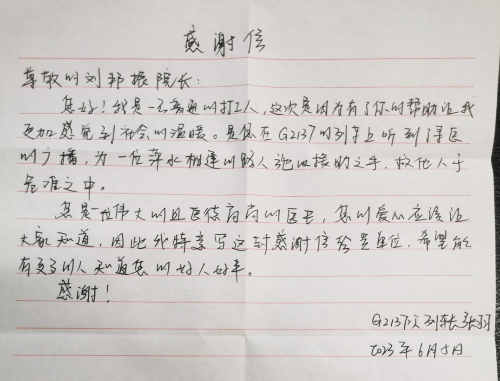 感谢信
尊敬的刘邦振院长：
您好！我是一名普通的打工人，这次是因为有了你的帮助让我
更加感觉到社会的温暖。是你在G2137的列车上听到寻医
的广播，为一位萍水相逢的路人施以援助之手，救他人于
危难之中。
您是一位伟大的且医德高尚的医生，您的爱心应该让
大家知道，因此我特意写这封感谢信给贵单位，希望能
有更多的人知道您的好人好事。
感谢！
G2137次列车 张羽
2023年6月5日